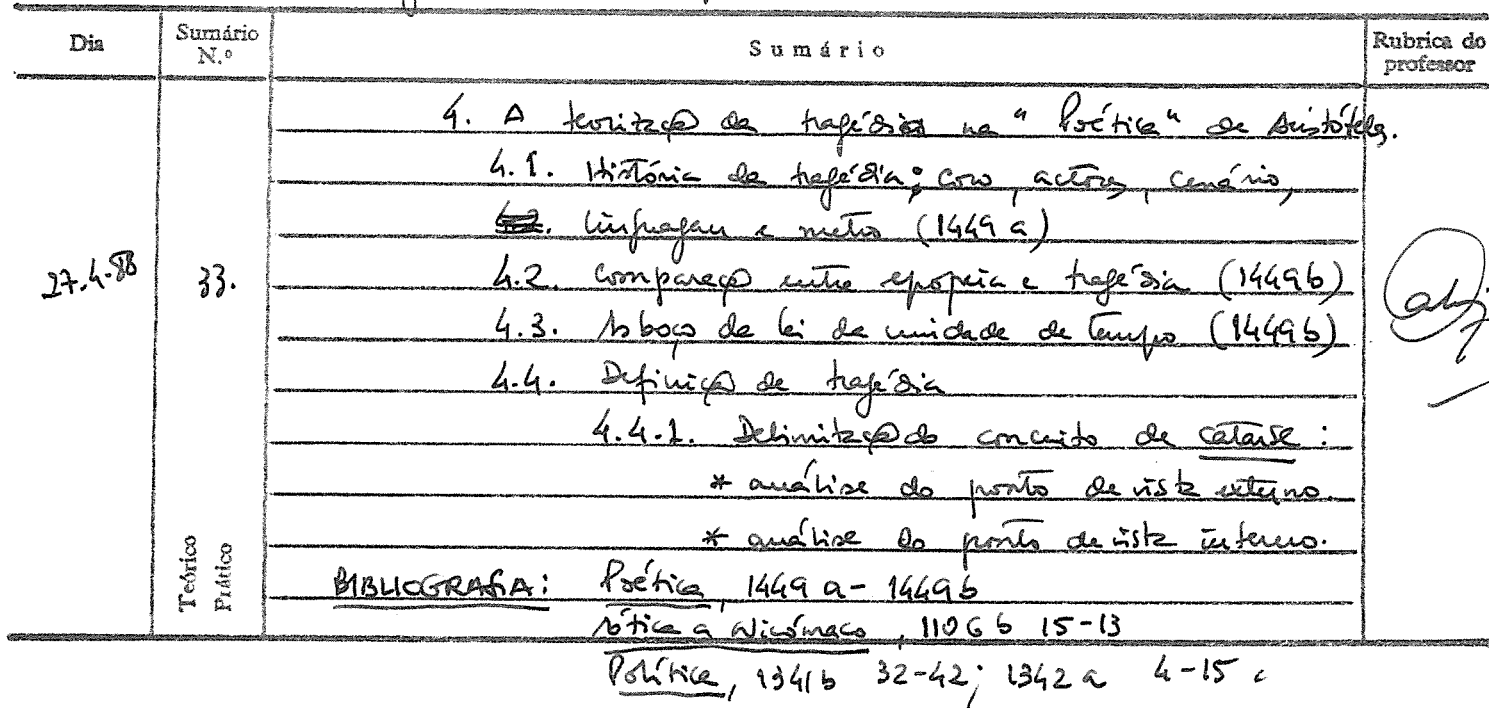 Dia Sumário N.º Sumário Rubrica do professor
4. A teorização da tragédia na "Poética" de Aristóteles.
4.1. História da tragédia; coro, actores, cenário,
linguagem e metro (1449 a)
27.4.88 33. 4.2. Comparação entre epopeia e tragédia (1449b)
4.3. Esboço da lei da unidade de tempo (1449b)
4.4. Definição de tragédia
4.4.1. Delimitação do conceito de catarse:
* análise do ponto de vista externo.
* análise do ponto de vista interno.
Teórico Prático
BIBLIOGRAFIA: Poética, 1449 a - 1449b
Ética a Nicómaco, 1106 b 15-13
Política, 1341b 32-42; 1342 a 4-15